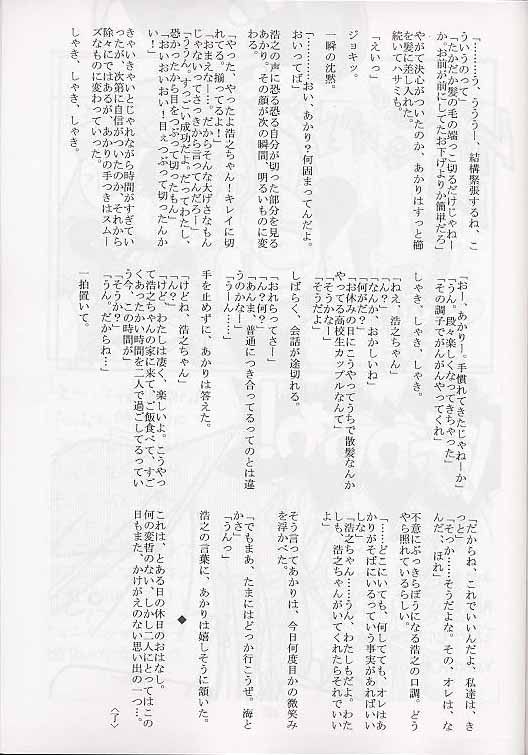 「………う、うううー、結構緊張するね、こ
ういうのって」
「たかだか髪の毛の端っこ切るだけじゃねー
か。お前が前にしてたお下げよりか簡単だろ」
やがて決心がついたのか、あかりはすっと櫛
を髪に差し入れた。
続いてハサミも。
「えいっ」
ジョキッ。
一瞬の沈黙。
「………おい、あかり？何固まってんだよ。
おいってば」
浩之の声に恐る恐る自分が切った部分を見る
あかり。その顔が次の瞬間、明るいものに変
わる。
「やった、やったよ浩之ちゃん！キレイに切
れてる。揃ってるよ！」
「おまえなー…。だからそんな大げさなもん
じゃないってさっきから言ってんだろー」
「ううん。すっごい成功だよ。だってわたし、
恐かったから目をつぶって切ったもん」
「おいおいおい！目ぇつぶって切ったんか
い！」
きゃいきゃいとじゃれながら時間がすぎてい
ったが、次第に自信がついたのか、それから
除々にではあるが、あかりの手つきはスムー
ズなものに変わっていった。
しゃき、しゃき、しゃき。
「おー、あかりー。手慣れてきたじゃねーか」
「うん。段々楽しくなってきちゃった」
「その調子でがんがんやってくれ」
しゃき、しゃき、しゃき。
「ねえ、浩之ちゃん」
「ん？」
「なんか、おかしいね」
「何がだ？」
「お休みの日にこうやってうちで散髪なんか
やってる高校生カップルなんて」
「そうかなー」
「そうだよ」
しばらく、会話が途切れる。
「おれらってさー」
「ん？何？」
「あんま、普通につき合ってるってのとは違
うのかなー」
「うーん…」
手を止めずに、あかりは答えた。
「けどね、浩之ちゃん」
「ん？」
「けど、わたしは凄く、楽しいよ。こうやっ
て浩之ちゃんの家に来て、ご飯食べて、すご
くあったかい時間を二人で過ごしてるってい
う今、この時間が」
「そうか？」
「うん。だからね…」
一拍置いて。
「だからね、これでいいんだよ、私達は、き
っと」
「そっか……そうだよな。その、オレは、な
んだ、ほれ」
不意にぶっきらぼうになる浩之の口調。どう
やら照れているらしい。
「……どこにいても、何してても、オレはあ
かりがそばにいるっていう事実があればいい
しな」
「浩之ちゃん……うん、わたしもだよ。わた
しも、浩之ちゃんがいてくれたらそれでいい
よ」
そう言ってあかりは、今日何度目かの微笑み
を浮かべた。
「でもまあ、たまにはどっか行こうぜ。海と
かさ」
「うんっ」
浩之の言葉に、あかりは嬉しそうに頷いた。
◆
これは、とある日の休日のおはなし。
何の変哲のない、しかし二人にとってはこの
日もまた、かけがえのない思い出の一つ…。
〈了〉